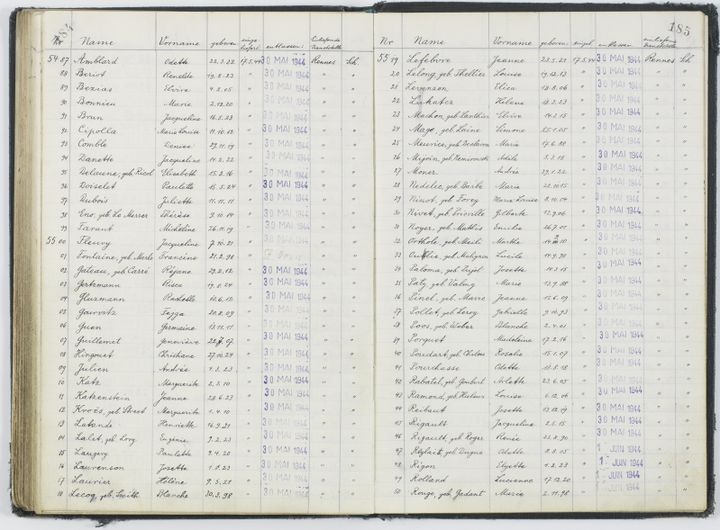 184
Nr Name Vorname geboren: eingeliefert: entlassen: Einliefernde Dienststelle
5487 Amblard Odette 22.5.22 17.5.44 30 MAI 1944 Rennes Sch.
88 Beriot Benedite 19.8.23 " 30 MAI 1944 " "
89 Bezias Elvire 4.2.05 " 30 MAI 1944 " "
90 Bonnieu Marie 2.12.20 " 30 MAI 1944 " "
91 Brun Jacqueline 16.5.23 " 30 MAI 1944 " "
92 Cipolla Marie Louise 11.10.12 " 30 MAI 1944 " "
93 Comble Denise 29.11.19 " 30 MAI 1944 " "
94 Danette Jacqueline 14.2.22 " 30 MAI 1944 " "
95 Delaune, geb Ricol Elisabeth 15.2.16 " 30 MAI 1944 " "
96 Doiselet Paulette 15.5.24 " 30 MAI 1944 " "
97 Dubois Juliette 11.11.11 " 30 MAI 1944 " "
98 Eno, geb Le Merrer Thérèse 9.10.14 " 30 MAI 1944 " "
99 Farant Micheline 26.11.19 " 30 MAI 1944 " "
5500 Fleury Jacqueline 7.10.21 " 30 MAI 1944 " "
01 Fontaine, geb Merle Francine 21.2.98 " " "
02 Gateau, geb Carré Rejane 29.2.12 " 30 MAI 1944 " "
03 Gertzmann 17.5.24 " 30 MAI 1944 " "
04 Gluzmann Rachelle 10.6.12 " 30 MAI 1944 " "
05 Gourvitz Fayga 20.8.09 " 30 MAI 1944 " "
06 Guen Germaine 13.11.11 " 30 MAI 1944 " "
07 Guillemet Geneviève 22.7.07 " 30 MAI 1944 " "
08 Hinguet Christiane 27.10.24 " 30 MAI 1944 " "
09 Julien Andrée 9.3.23 " 30 MAI 1944 " "
10 Katz Marguerite 2.3.10 " 30 MAI 1944 " "
11 Katzenstein Jeanne 20.6.23 " 30 MAI 1944 " "
12 Marguerite 1.4.10 " 30 MAI 1944 " "
13 Lalande Henriette 16.9.21 " 30 MAI 1944 " "
14 Lalet, geb Lory Eugénie 9.2.23 " 30 MAI 1944 " "
15 Laugery Paulette 9.4.20 " 30 MAI 1944 " "
16 Laurenson Josette 1.8.23 " 30 MAI 1944 " "
17 Laurier Hélène 9.5.21 " 30 MAI 1944 " "
18 Lecoq, geb Smith Blanche 30.3.98 " 30 MAI 1944 " "
185
Nr Name Vorname geboren: eingel. entlassen: einliefernde Dienststelle
5519 Lefebvre Jeanne 22.5.21 17.5.44 30 MAI 1944 Rennes Sch
20 Lelong, geb Thellier Louise 19.12.13 " 30 MAI 1944 " "
21 Levenson Elisa 13.8.06 " 30 MAI 1944 " "
22 Lukatez Helene 12.2.23 " 30 MAI 1944 " "
23 Machon, geb Elvire 14.2.15 " 30 MAI 1944 " "
24 Mage, geb Laine Simone 25.1.05 " 30 MAI 1944 " "
25 Meurice, geb Marie 17.6.20 " 30 MAI 1944 " "
26 Migoin, geb Adele 5.2.18 " 30 MAI 1944 " "
27 Moner Andrée 29.1.22 " 30 MAI 1944 " "
28 Nedelec, geb Barbe Maria 22.10.15 " 30 MAI 1944 " "
29 Nicout, geb Forey Marie Louise 8.10.04 " 30 MAI 1944 " "
30 Nivet, geb Trieville Gilberte 12.9.06 " 30 MAI 1944 " "
31 Noyer, geb Mathis Emilie 26.7.01 " 30 MAI 1944 " "
32 Orthols, geb Marthe " 30 MAI 1944 " "
33 geb Lucile 14.9.20 " 30 MAI 1944 " "
34 Paloma, geb Pujol Josette 14.3.15 " 30 MAI 1944 " "
35 Paty, geb Valmy Marie 13.9.88 " 30 MAI 1944 " "
36 Pinel, geb Marre Jeanne 15.6.09 " 30 MAI 1944 " "
37 Pollet, geb Leroy Gabrielle 9.10.93 " 30 MAI 1944 " "
38 Poos, geb Weber Blanche 2.4.01 " 30 MAI 1944 " "
39 Porquet Madeleine 17.2.16 " 30 MAI 1944 " "
40 geb Rosalie 15.1.07 " 30 MAI 1944 " "
41 Odette 13.5.18 " 30 MAI 1944 " "
42 Rabatel, geb Jombert Arlette 23.6.05 " 30 MAI 1944 " "
43 Ramond, geb Louise 6.12.04 " 30 MAI 1944 " "
44 Reibaut Josette 13.12.19 " 30 MAI 1944 " "
45 Rigault Jacqueline 2.5.15 " 30 MAI 1944 " "
46 Rigault, geb Roger Renée 23.8.90 " 30 MAI 1944 " "
47 geb Adele 8.8.05 " 1 JUIN 1944 " "
48 Rigon Elyette 4.2.23 " 1 JUIN 1944 " "
49 Rolland Lucienne 17.12.20 " 1 JUIN 1944 " "
50 Rouge, geb Gadant Marie 2.11.96 " 30 MAI 1944 " "